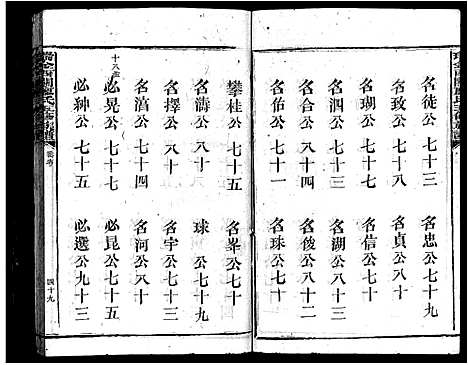 名徒公七十三
名忠公七十三
名致公七十八
名貞公七十八
名瑚公七十一
名信公七十一
名泗公七十三
名湖公八十三
名合公八十四
名俊公八十二
名伯公八十一
名珠公七十一
攀桂公七十五
名峯公七十
名濤公八十
球公七十九
名擇公八十
名宇公七十三
名濱公七十四
名河公八十
十八世
必晃公七十七
必昆公七十五
必紳公七十五
必選公九十三
四十九